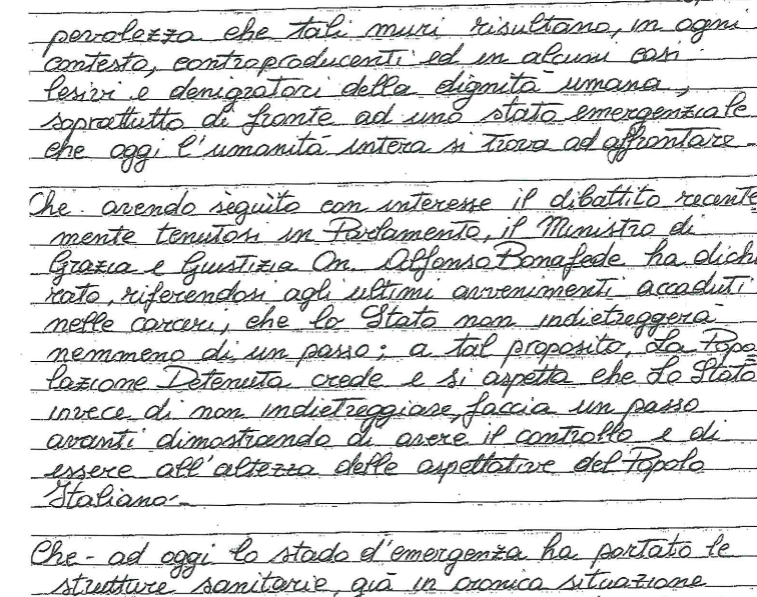 pevolezza che tali muri risultano, in ogni
contesto, controproducenti ed in alcuni casi
lesivi e denigratori della dignità umana,
soprattutto di fronte ad uno stato emergenziale
che oggi l'umanità intera si trova ad affrontare-
Che- avendo seguito con interesse il dibattito recente
mente tenutosi in Parlamento, il Ministro di
Grazia e Giustizia On. Alfonso Bonafede ha dichi
rato, riferendosi agli ultimi avvenimenti accaduti
nelle carceri, che lo Stato non indietreggerà
nemmeno di un passo; a tal proposito, La Popo
lazione Detenuta crede e si aspetta che Lo Stato
invece di non indietreggiare, faccia un passo
avanti dimostrando di avere il controllo e di
essere all'altezza delle aspettative del Popolo
Italiano-
Che- ad oggi lo stado d'emergenza ha portato le
strutture sanitarie, già in cronica situazione